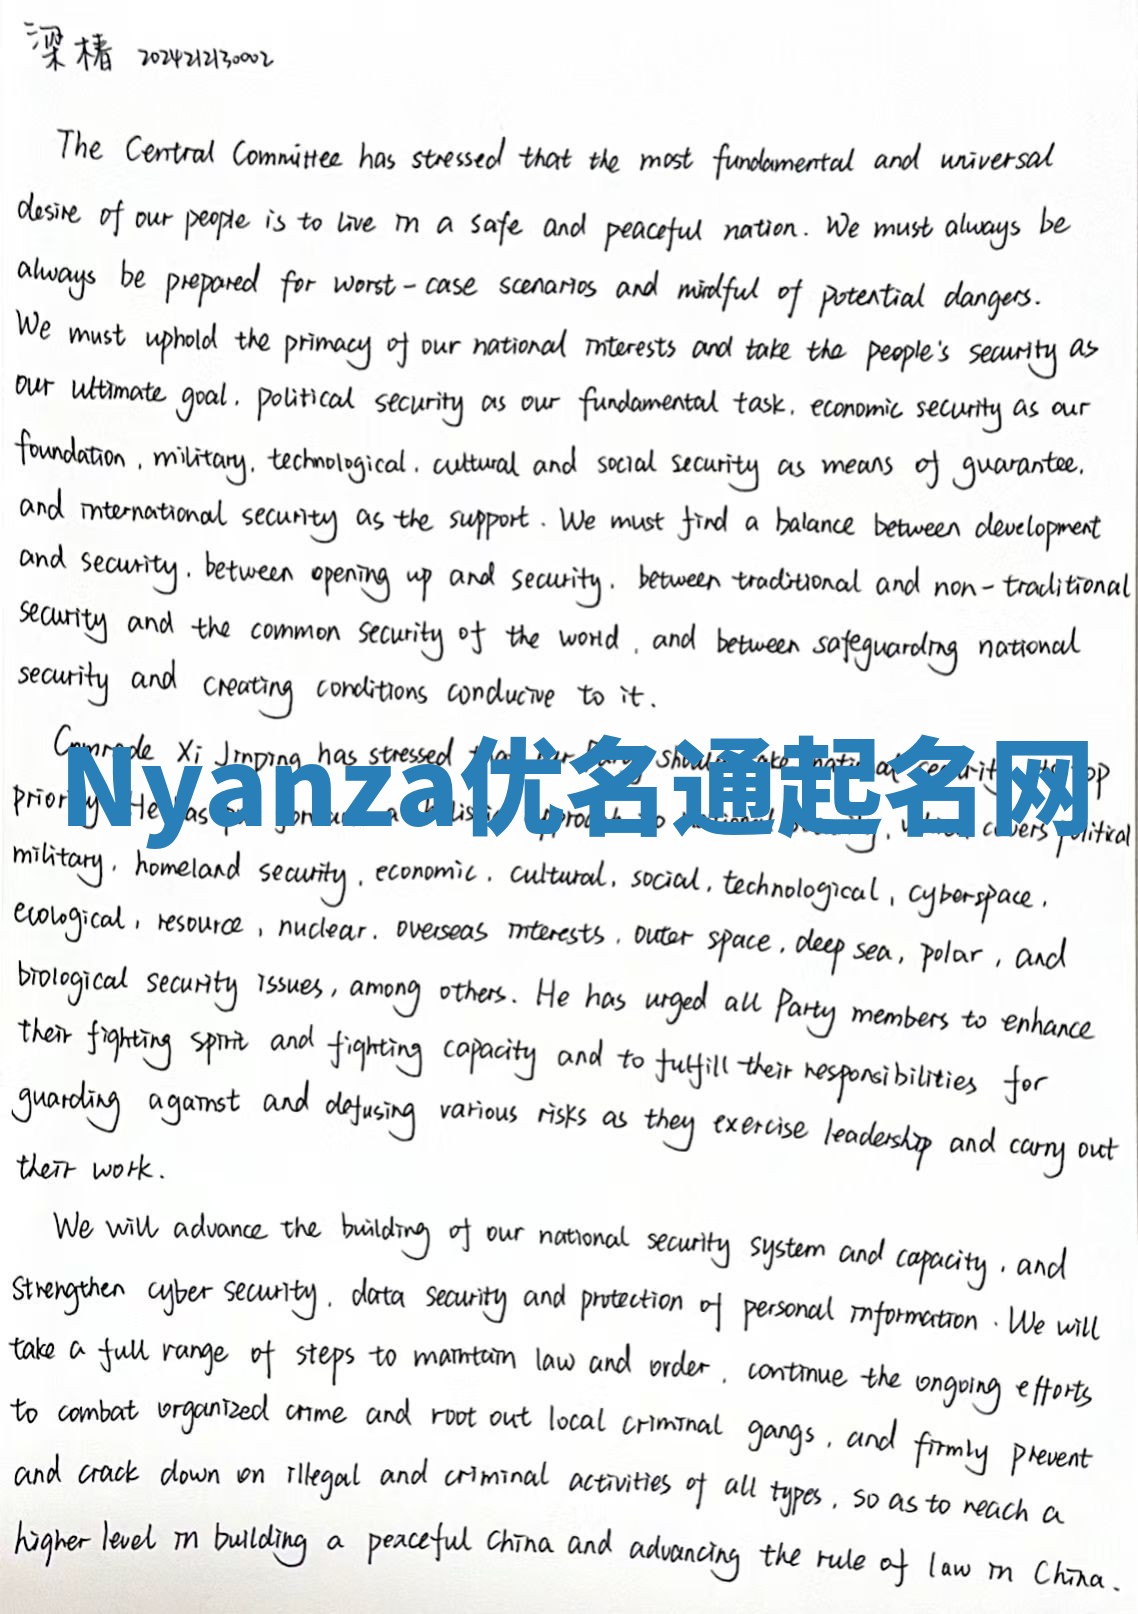 梁椿 2024212130002
The Central Committee has stressed that the most fundamental and universal
desire of our people is to live in a safe and peaceful nation. We must always be
always be prepared for worst-case scenarios and mindful of potential dangers.
We must uphold the primacy of our national interests and take the people's security as
our ultimate goal, political security as our fundamental task, economic security as our
foundation, military, technological, cultural and social security as means of guarantee,
and international security as the support. We must find a balance between development
and security, between opening up and security, between traditional and non-traditional
security and the common security of the world, and between safeguarding national
security and creating conditions conducive to it.
Comrade Xi Jinping has stressed
Nyanza优名通起名网
priority. He covers political
military, homeland security, economic, cultural, social, technological, cyberspace,
ecological, resource, nuclear, overseas interests, outer space, deep sea, polar, and
biological security issues, among others. He has urged all Party members to enhance
their fighting spirit and fighting capacity and to fulfill their responsibilities for
guarding against and defusing various risks as they exercise leadership and carry out
their work.
We will advance the building of our national security system and capacity, and
strengthen cyber security, data security and protection of personal information. We will
take a full range of steps to maintain law and order, continue the ongoing efforts
to combat organized crime and root out local criminal gangs, and firmly prevent
and crack down on illegal and criminal activities of all types, so as to reach a
higher level in building a peaceful China and advancing the rule of law in China.